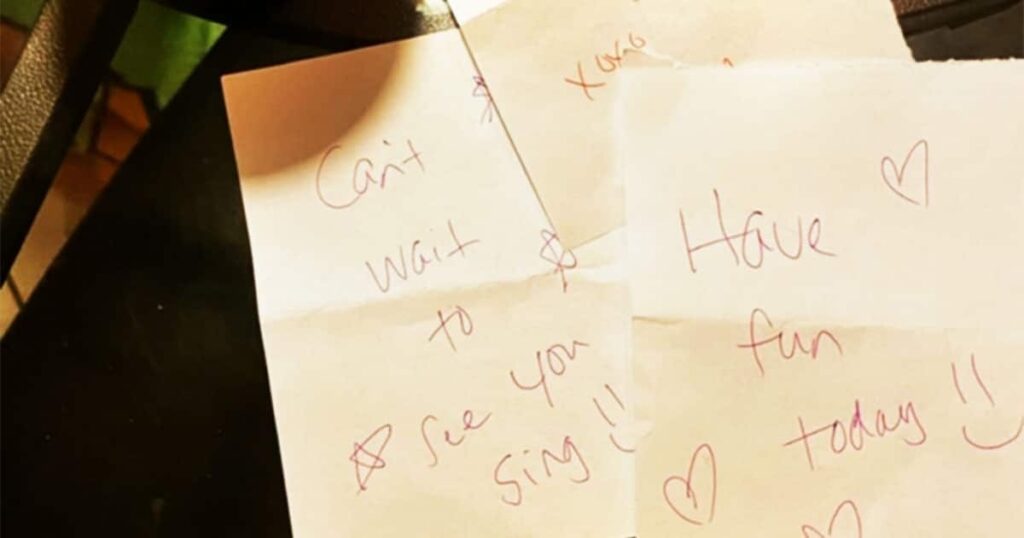 xoxo
Can't
wait
to
see you
sing !!
Have
fun
today !!